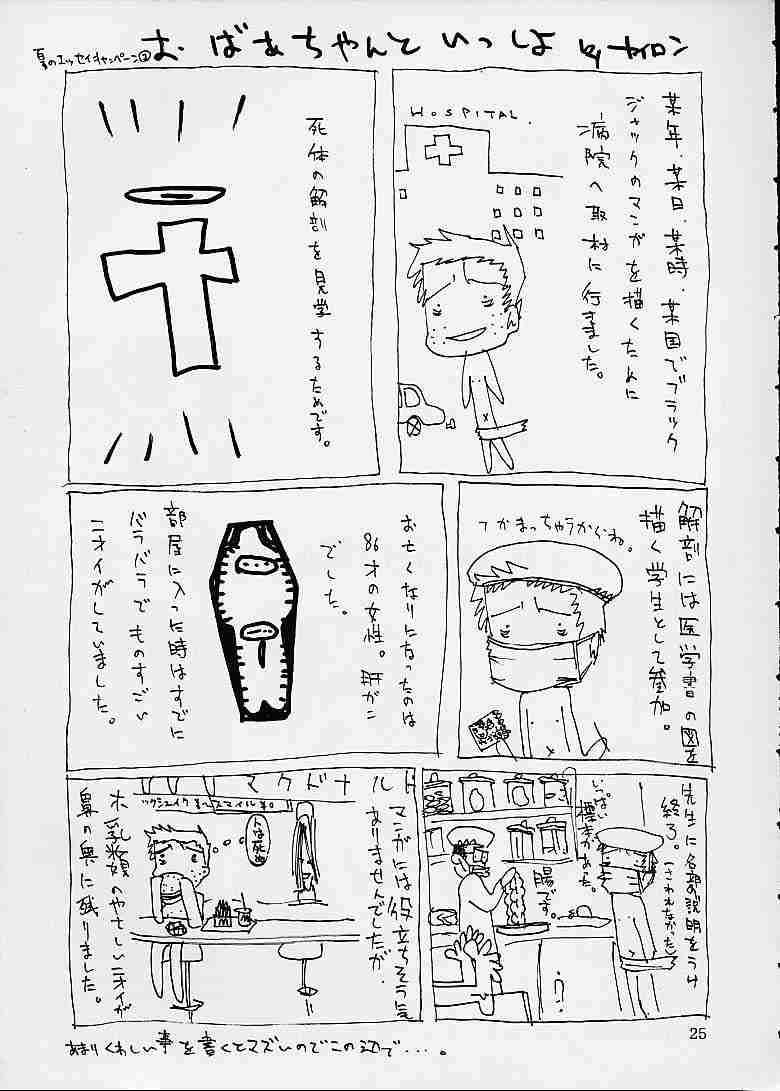 夏のエッセイキャンペーン②
おばあちゃんといっしょ by ナイロン
某年、某日、某時、某国でブラック
ジャックのマンガを描くために
病院へ取材に行きました。
HOSPITAL.
死体の解剖を見学するためです。
解剖には医学書の図を
描く学生として参加。
つかまっちゃうからね。
お亡くなりになったのは
86才の女性。肝がん
でした。
部屋に入った時はすでに
バラバラでものすごい
ニオイがしていました。
先生に各部の説明をうけ
終了。(さわれなかった)
いっぱい
標本があった。
腸です。
マクドナルド
マンガには役立ちそうに
ありませんでしたが、
人は死ぬ
ホ乳瓶のやさしいニオイが
鼻の奥に残りました。
あまりくわしい事を書くとマズいのでこの辺で・・・。
25